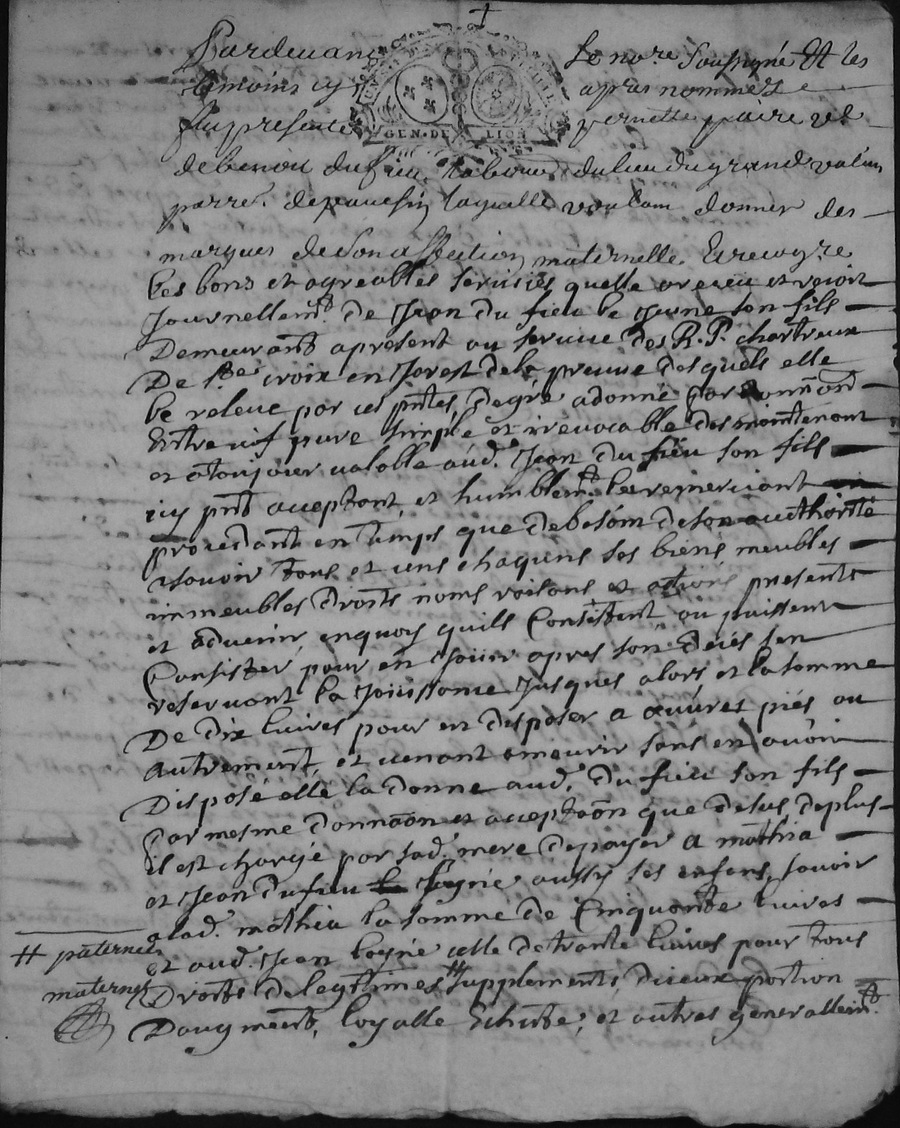 Pardevant le no.re soussigné et les
temoins cy apres nommes
fust presente pernette paire vef.
de benoit du fieu labour. du lieu du grand valun
parre. de pauesin laquelle voulant donner des
marques de son affection maternelle et recog.re
les bons et agreables seruices quelle a receu et reçoit
Journellem.t de Jean du fieu le jeune son fils
Demeurant apresent au seruice des R.P. chartreux
De s.te croix en forest de la preuue desquels elle
le releue par ces pntes, de gré a donné par donnaon
Entre vif pure simple et irreuocable des maintenant
et a toujour valable aud. Jean du fieu son fils
icy pnt aceptant, et humblem.t la remerciant
procedant en temps que de besoin de son authorité
scauoir tous et uns chaquuns ses biens meubles
immeubles droits noms raisons et actions presents
et aduenir, enquoy quils Consistent ou puissent
Consister, pour en jouir apres son déces sen
reseruant la jouissance jusques alors et la somme
De dix liures pour en disposer a œuures piés ou
autrement, et uenant a mourir sans en auoir
Disposé elle la donne aud. du fieu son fils
Par mesme donnaon et acceptaon que desus deplus
il est chargé par sad. mere de payer a mathia
et Jean du fieu layné aussy ses enfans, sauoir
a lad. mathia la somme de Cinquante liures
et aud. Jean layné celle de trante liures pour tous
Droits de legitimes # supplements diceux portion
Daugment, loyalle Echutte, et autres generallem.t
# paternels
maternels
GEN. DE LION